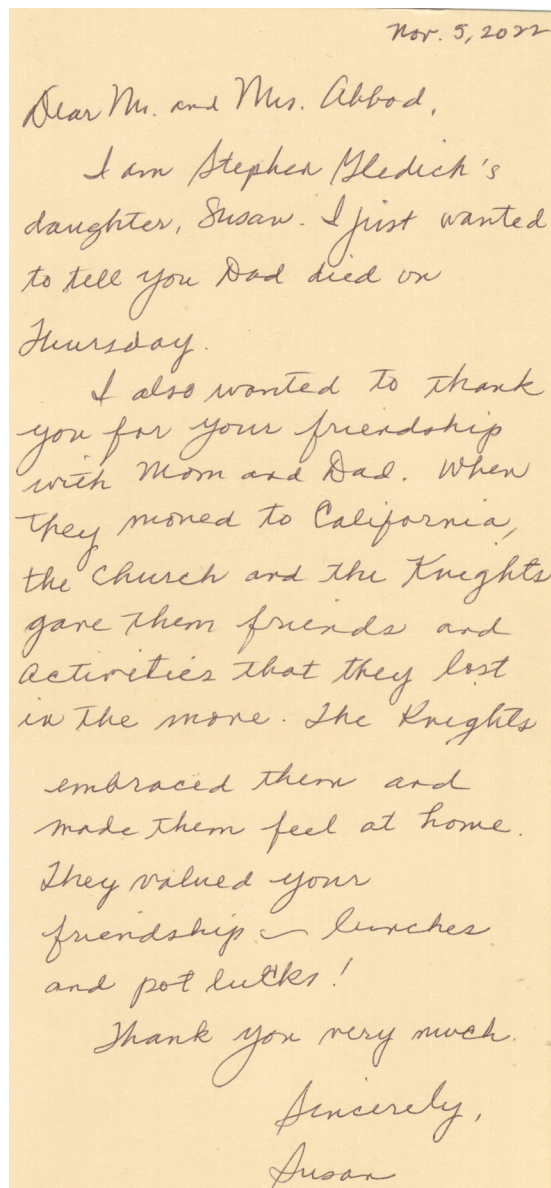 Nov. 5, 2022
Dear Mr. and Mrs. Abbod,
I am Stephen Gledich's
daughter, Susan. I just wanted
to tell you Dad died on
Thursday.
I also wanted to thank
you for your friendship
with Mom and Dad. When
they moved to California,
the Church and the Knights
gave them friends and
activities that they lost
in the move. The Knights
embraced them and
made them feel at home.
They valued your
friendship ~ lunches
and pot lucks!
Thank you very much.
Sincerely,
Susan